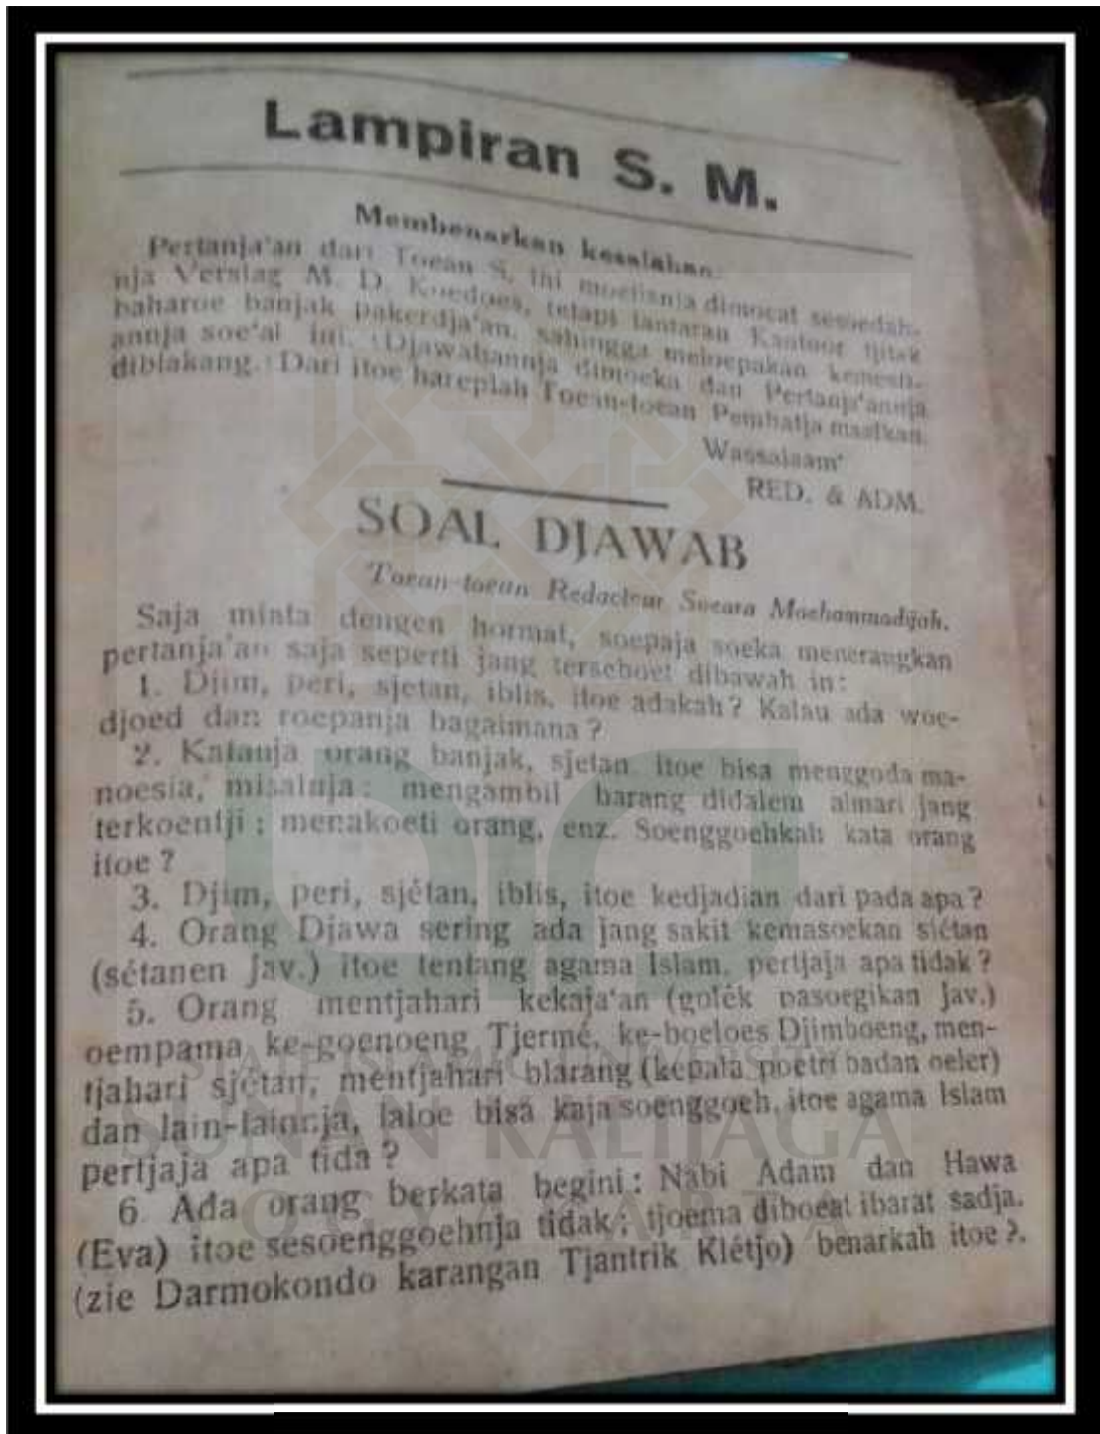 Lampiran S. M.
Membenarkan kesalahan.
Pertanja'an dari Toean S. ini moestinja dimoeat sesoedah-
nja Verslag M. D. Koedoes, tetapi lantaran Kantoor tjitak
baharoe banjak pakerdja'an, sahingga meloepakan kemesti-
annja soe'al ini. (Djawabannja dimoeka dan Pertanja'annja
diblakang.) Dari itoe hareplah Toean-toean Pembatja maafkan.
Wassalaam'
RED. & ADM.
SOAL DJAWAB
Toean-toean Redacteur Soeara Moehammadijah.
Saja minta dengen hormat, soepaja soeka menerangkan
pertanja'an saja seperti jang terseboet dibawah in:
1. Djim, peri, sjetan, iblis, itoe adakah? Kalau ada woe-
djoed dan roepanja bagaimana?
2. Katanja orang banjak, sjetan itoe bisa menggoda ma-
noesia, misalnja: mengambil barang didalem almari jang
terkoentji; menakoeti orang, enz. Soenggoehkah kata orang
itoe?
3. Djim, peri, sjétan, iblis, itoe kedjadian dari pada apa?
4. Orang Djawa sering ada jang sakit kemasoekan sjétan
(sétanen Jav.) itoe tentang agama Islam, pertjaja apa tidak?
5. Orang mentjahari kekaja'an (golék pasoegikan Jav.)
oempama ke-goenoeng Tjermé, ke-boeloes Djimboeng, men-
tjahari sjétan, mentjahari blarang (kepala poetri badan oeler)
dan lain-lainnja, laloe bisa kaja soenggoeh, itoe agama Islam
pertjaja apa tida?
6. Ada orang berkata begini: Nabi Adam dan Hawa
(Eva) itoe sesoenggoehnja tidak; tjoema diboeat ibarat sadja.
(zie Darmokondo karangan Tjantrik Klétjo) benarkah itoe?.
STATE ISLAMIC UNIVERSITY
SUNAN KALIJAGA
YOGYAKARTA